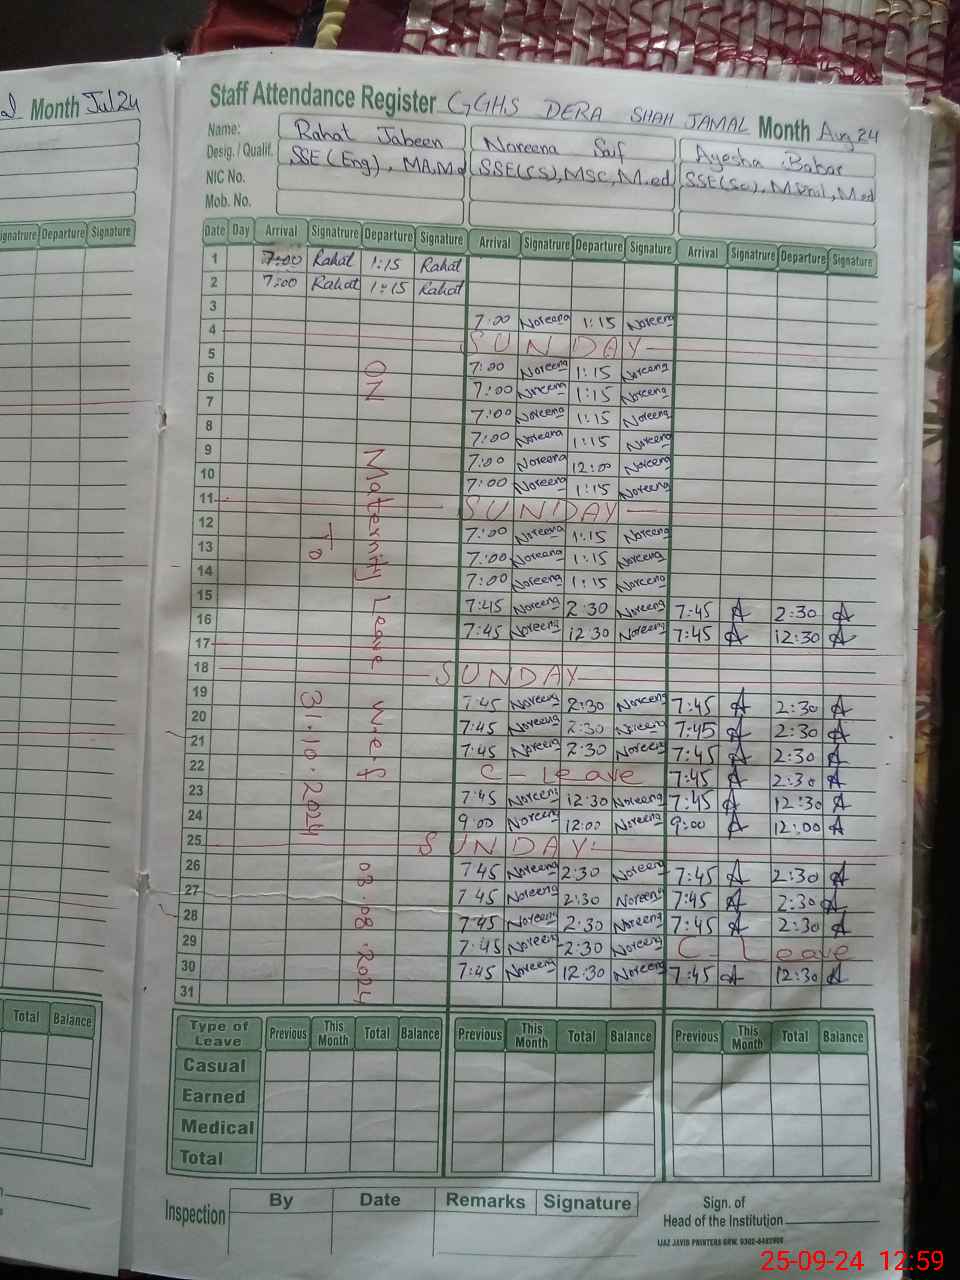 Month Jul 24
Staff Attendance Register GGHS DERA SHAH JAMAL Month Aug 24
Name: Rahat Jabeen Noreena Saif Ayesha Babar
Desig. / Qualif. SSE(Eng), MA,M.ed SSE(CS), MSC, M.ed SSE(Sc), M.Phil, M.ed
NIC No.
Mob. No.
Signature Departure Signature
Date Day Arrival Signatrure Departure Signature Arrival Signatrure Departure Signature Arrival Signatrure Departure Signature
1 7:00 Rahat 1:15 Rahat
2 7:00 Rahat 1:15 Rahat
3 7:00 Noreena 1:15 Noreena
4 SUNDAY
5 7:00 Noreena 1:15 Noreena
6 7:00 Noreena 1:15 Noreena
7 7:00 Noreena 1:15 Noreena
8 7:00 Noreena 1:15 Noreena
9 7:00 Noreena 12:00 Noreena
10 7:00 Noreena 1:15 Noreena
11 SUNDAY
12 7:00 Noreena 1:15 Noreena
13 7:00 Noreena 1:15 Noreena
14 7:00 Noreena 1:15 Noreena
15 7:45 Noreena 2:30 Noreena 7:45 A 2:30 A
16 7:45 Noreena 12:30 Noreena 7:45 A 12:30 A
17
18 SUNDAY
19 7:45 Noreena 2:30 Noreena 7:45 A 2:30 A
20 7:45 Noreena 2:30 Noreena 7:45 A 2:30 A
21 7:45 Noreena 2:30 Noreena 7:45 A 2:30 A
22 C - leave 7:45 A 2:30 A
23 7:45 Noreena 12:30 Noreena 7:45 A 12:30 A
24 9:00 Noreena 12:00 Noreena 9:00 A 12:00 A
25 SUNDAY
26 7:45 Noreena 2:30 Noreena 7:45 A 2:30 A
27 7:45 Noreena 2:30 Noreena 7:45 A 2:30 A
28 7:45 Noreena 2:30 Noreena 7:45 A 2:30 A
29 7:45 Noreena 2:30 Noreena C - leave
30 7:45 Noreena 12:30 Noreena 7:45 A 12:30 A
31
ON Maternity Leave w.e.f 03.08.2024
To 31.10.2024
Total Balance
Type of Leave Previous This Month Total Balance Previous This Month Total Balance Previous This Month Total Balance
Casual
Earned
Medical
Total
Inspection By Date Remarks Signature
Sign. of
Head of the Institution
IJAZ JAVID PRINTERS GRW. 0302-6482900
25-09-24 12:59